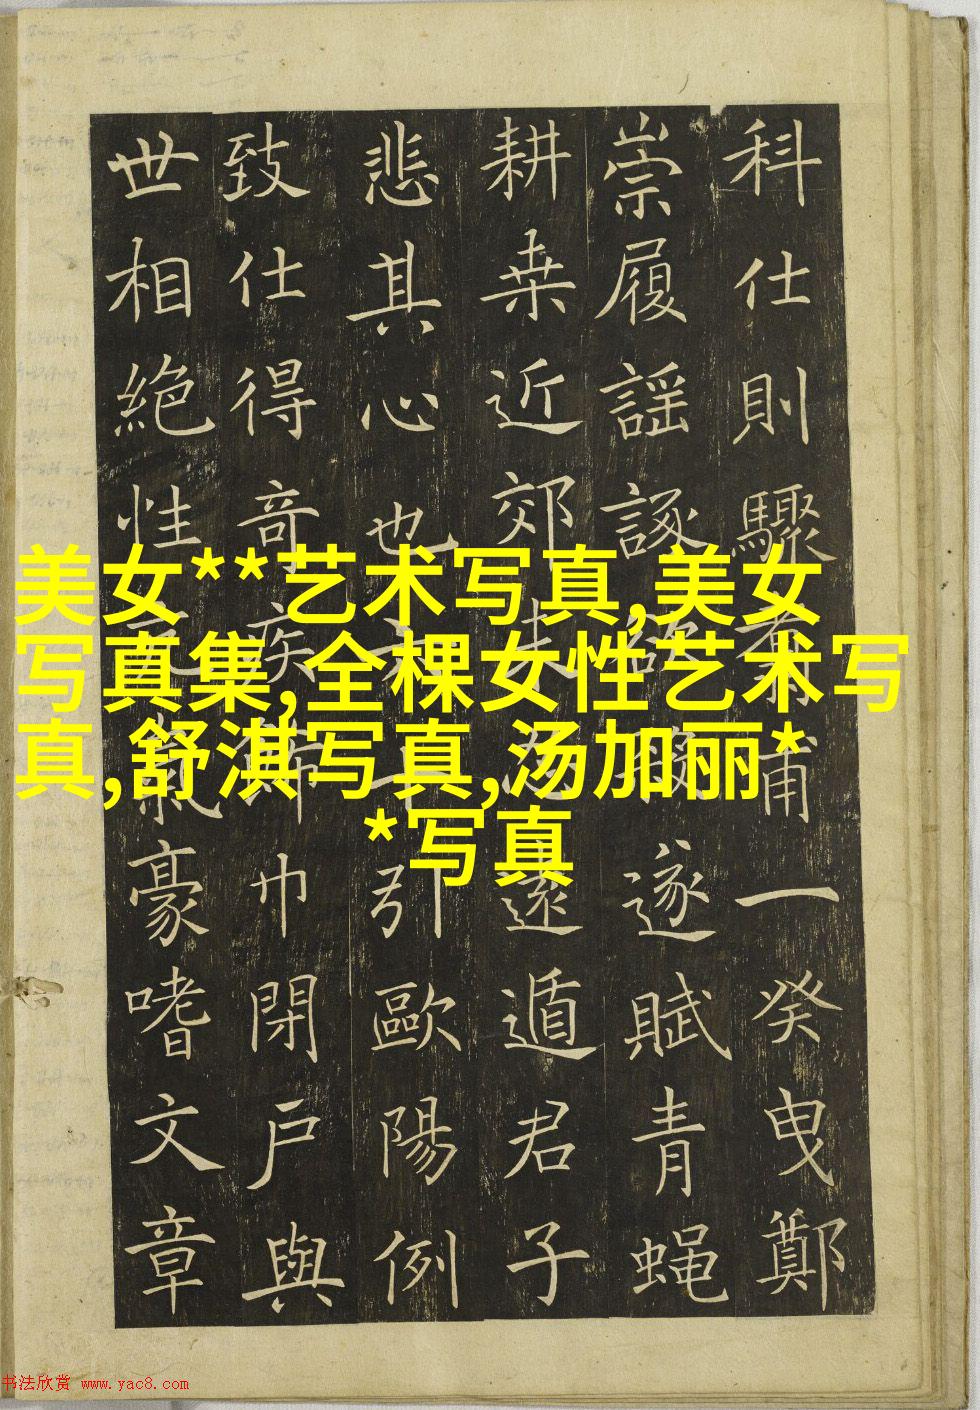 科仕則驟甫一癸曳鄭
崇履謡諑遂賦青蝇
耕桒近郊未遠遁君子
悲其心也引歐陽例
致仕得奇疾巾閉戶與
世相絶性豪嗜文章
美女**艺术写真,美女
写真集,全棵女性艺术写
真,舒淇写真,汤加丽*
*写真
书法欣赏 www.yac8.com